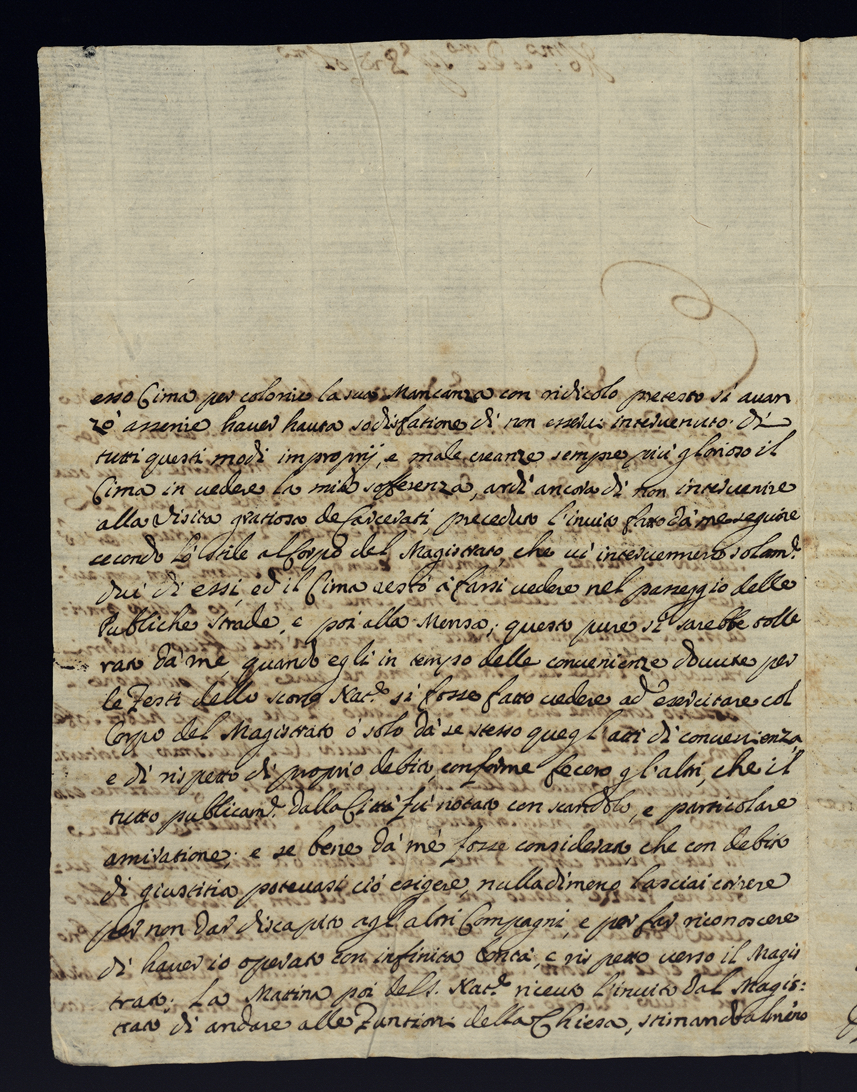 esso Cima per colorire la sua Mancanza con ridicolo pretesto si avan
zò asserire haver hauta sodisfatione di non esservi intervenuto. di
tutti questi modi improprij, e male creanze sempre più glorioso il
Cima in vedere la mia sofferenza, ardì ancora di non intervenire
alla Visita gratiosa de Carcerati, preceduto l'invito fatto da me seguire
secondo lo stile al Corpo del Magistrato, che vi intervennero solamte
dui di essi, ed il Cima restò à farsi vedere nel passeggio delle
Publiche strade, e poi alla Mensa; questo pure si sarebbe tolle
rato da me quando egli in tempo delle convenienze dovute per
le Feste dello scorso Nate si fosse fatto vedere ad esercitare col
Corpo del Magistrato ò solo dà se stesso quegl'atti di convenienza,
e di rispetto di proprio debito, conforme fecero gl'altri, che il
tutto publicamte dalla Città fù notato con scandolo, e particolare
amiratione; e se bene dà mè fosse considerato, che con debito
di giustitia potevasi ciò esigere, nulladimeno lasciai correre
per non dar discapito agl'altri Compagni, e per far riconoscere
di haver io operato con infinita bontà, e rispetto verso il Magis
trato; La Matina poi del S. Nate ricevo l'invito dal Magis:
trato di andare alle Funtioni della Chiesa, stimando almeno